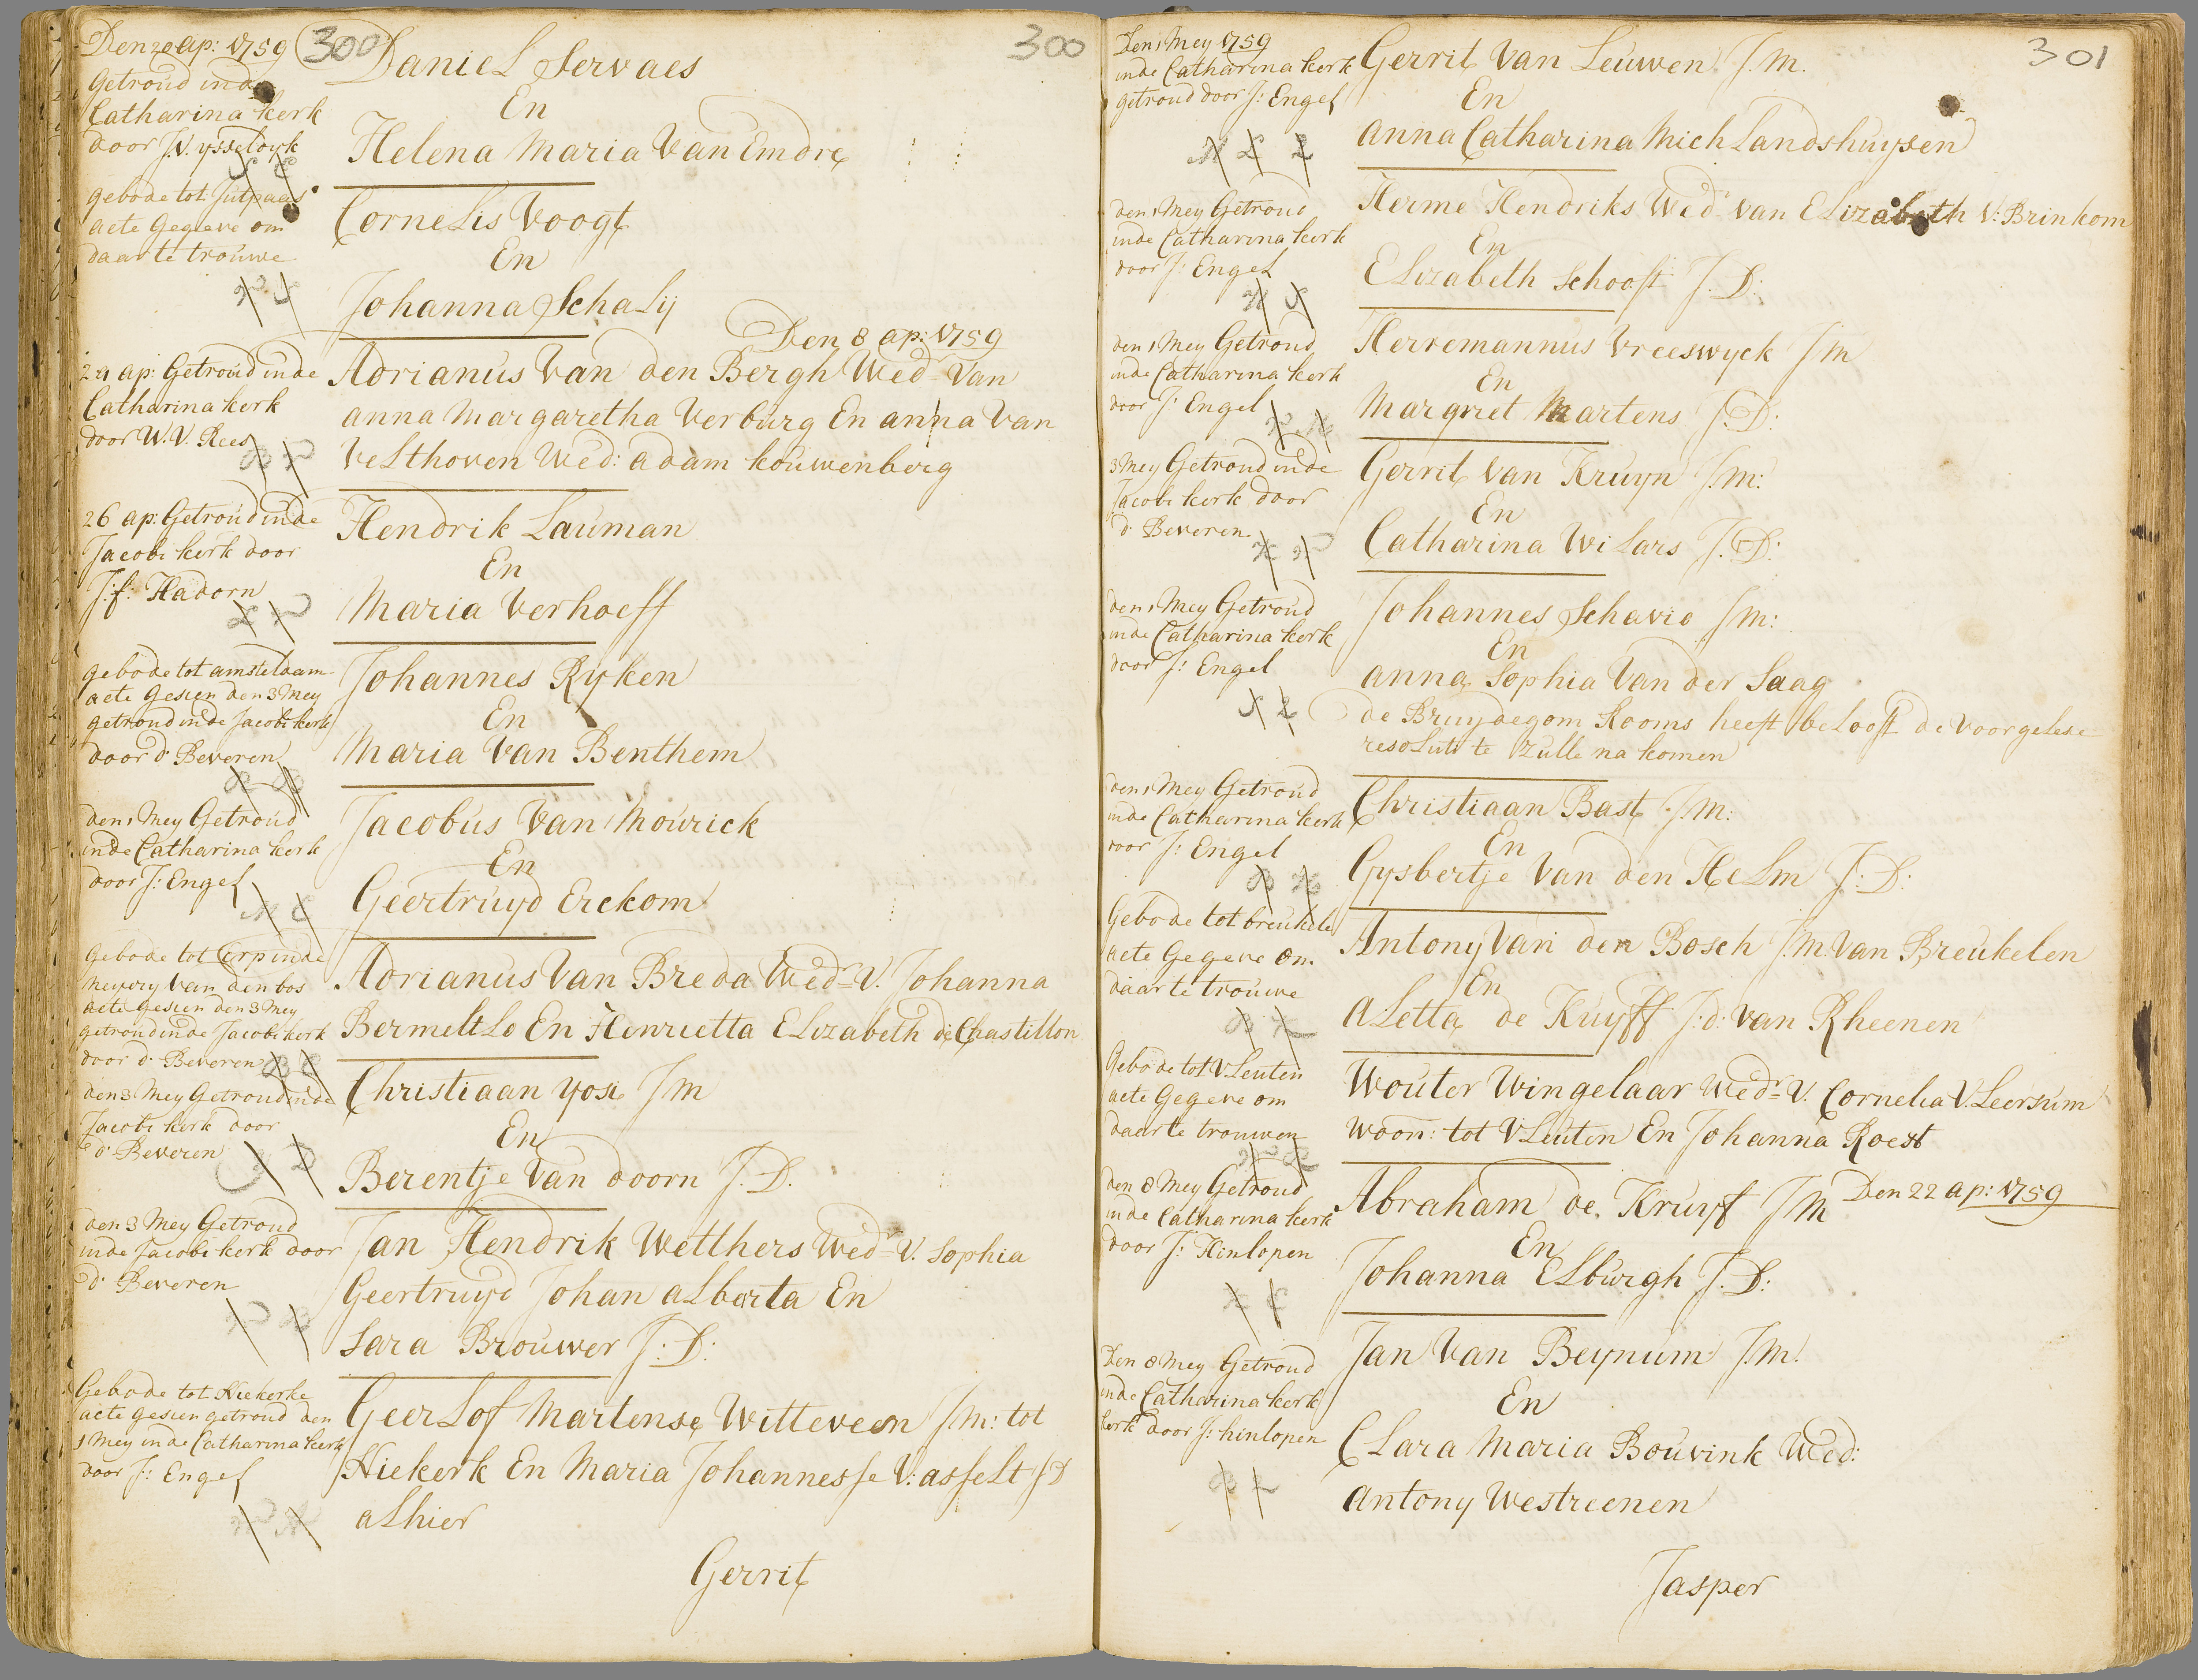 Den 20 ap: 1759
300
Getroud inde
Catharina kerk
door J.V. ysseldyk
Daniel Servaes
En
Helena Maria Van Emdre
300
gebode tot Jutpaas
acte Gegeve om
daar te trouwe
Cornelis Voogt
En
Johanna Schaly
Den 8 ap: 1759
24 ap: Getroud inde
Catharina kerk
door W.V. Rees
Adrianus Van den Bergh Wed Van
anna Margaretha Verburg En anna Van
Velthoven Wed: adam kouwenberg
26 ap: Getroud inde
Jacobi kerk door
J: f: Hadorn
Hendrik Lauman
En
Maria Verhoeff
gebode tot amsteldam
acte Gesien den 3 Mey
getroud inde Jacobi kerk
door d' Beveren
Johannes Ryken
En
Maria Van Benthem
den 1 Mey Getroud
inde Catharina kerk
door J: Engel
Jacobus Van Mourick
En
Geertruyd Erckom
Gebode tot Erp inde
meyery Van den bos
acte gesien den 3 Mey
getroud inde Jacobi kerk
door d' Beveren
Adrianus Van Breda Wedr V. Johanna
Bermeltlo En Henrietta Elizabeth de Chastillon
den 3 Mey Getroud inde
Jacobi kerk door
d' Beveren
Christiaan yosi J M
En
Berentje Van doorn J. D.
den 3 Mey Getroud
inde Jacobi kerk door
d' Beveren
Jan Hendrik Wetthers Wedr V. Sophia
Geertruyd Johan alberta En
Sara Brouwer J: D:
Gebode tot Niekerke
acte gesien getroud den
1 Mey inde Catharina kerk
door J: Engel
Geerlof Martense Witteveen J M: tot
Niekerk En Maria Johannesse V: asselt J D
alhier
Gerrit
301
Den 1 Mey 1759
inde Catharina kerk
getroud door J: Engel
Gerrit Van Leuwen J. M.
En
anna Catharina Mich Landshuysen
den 1 Mey Getroud
inde Catharina kerk
door J: Engel
Herme Hendriks Wedr van Elizabeth V: Brinkom
En
Elizabeth Schooft J. D:
den 1 Mey Getroud
inde Catharina kerk
door J: Engel
Herremannus Vreeswyck J M
En
Margriet Martens J. D:
3 Mey Getroud inde
Jacobi kerk door
d' Beveren
Gerrit Van Kruyn J. M:
En
Catharina Wilars J. D:
den 1 Mey Getroud
inde Catharina kerk
door J: Engel
Johannes Schavio J M:
En
anna Sophia Van der Saag
de Bruydegom Rooms heeft belooft de voorgelese
resoluti te zulle na komen
den 1 Mey Getroud
inde Catharina kerk
door J: Engel
Christiaan Bast J. M:
En
Gysbertje Van den Helm J: D:
Gebode tot breukele
acte Gegeve om
daar te trouwe
Antony Van den Bosch J. M. Van Breukelen
En
aletta de Kuyff J: d: van Rheenen
Gebode tot Vleuten
acte Gegeve om
daar te trouwen
Wouter Wingelaar Wedr V. Cornelia V. Leersum
woon: tot Vleuten En Johanna Roest
Den 22 ap: 1759
den 8 Mey Getroud
inde Catharina kerk
door J: Hinlopen
Abraham de Kruyf J M
En
Johanna Elburgh J. D:
Den 8 Mey Getroud
inde Catharina kerk
kerk door J: hinlopen
Jan Van Beynum J. M.
En
Clara Maria Bouvink Wed:
Antony Westreenen
Jasper